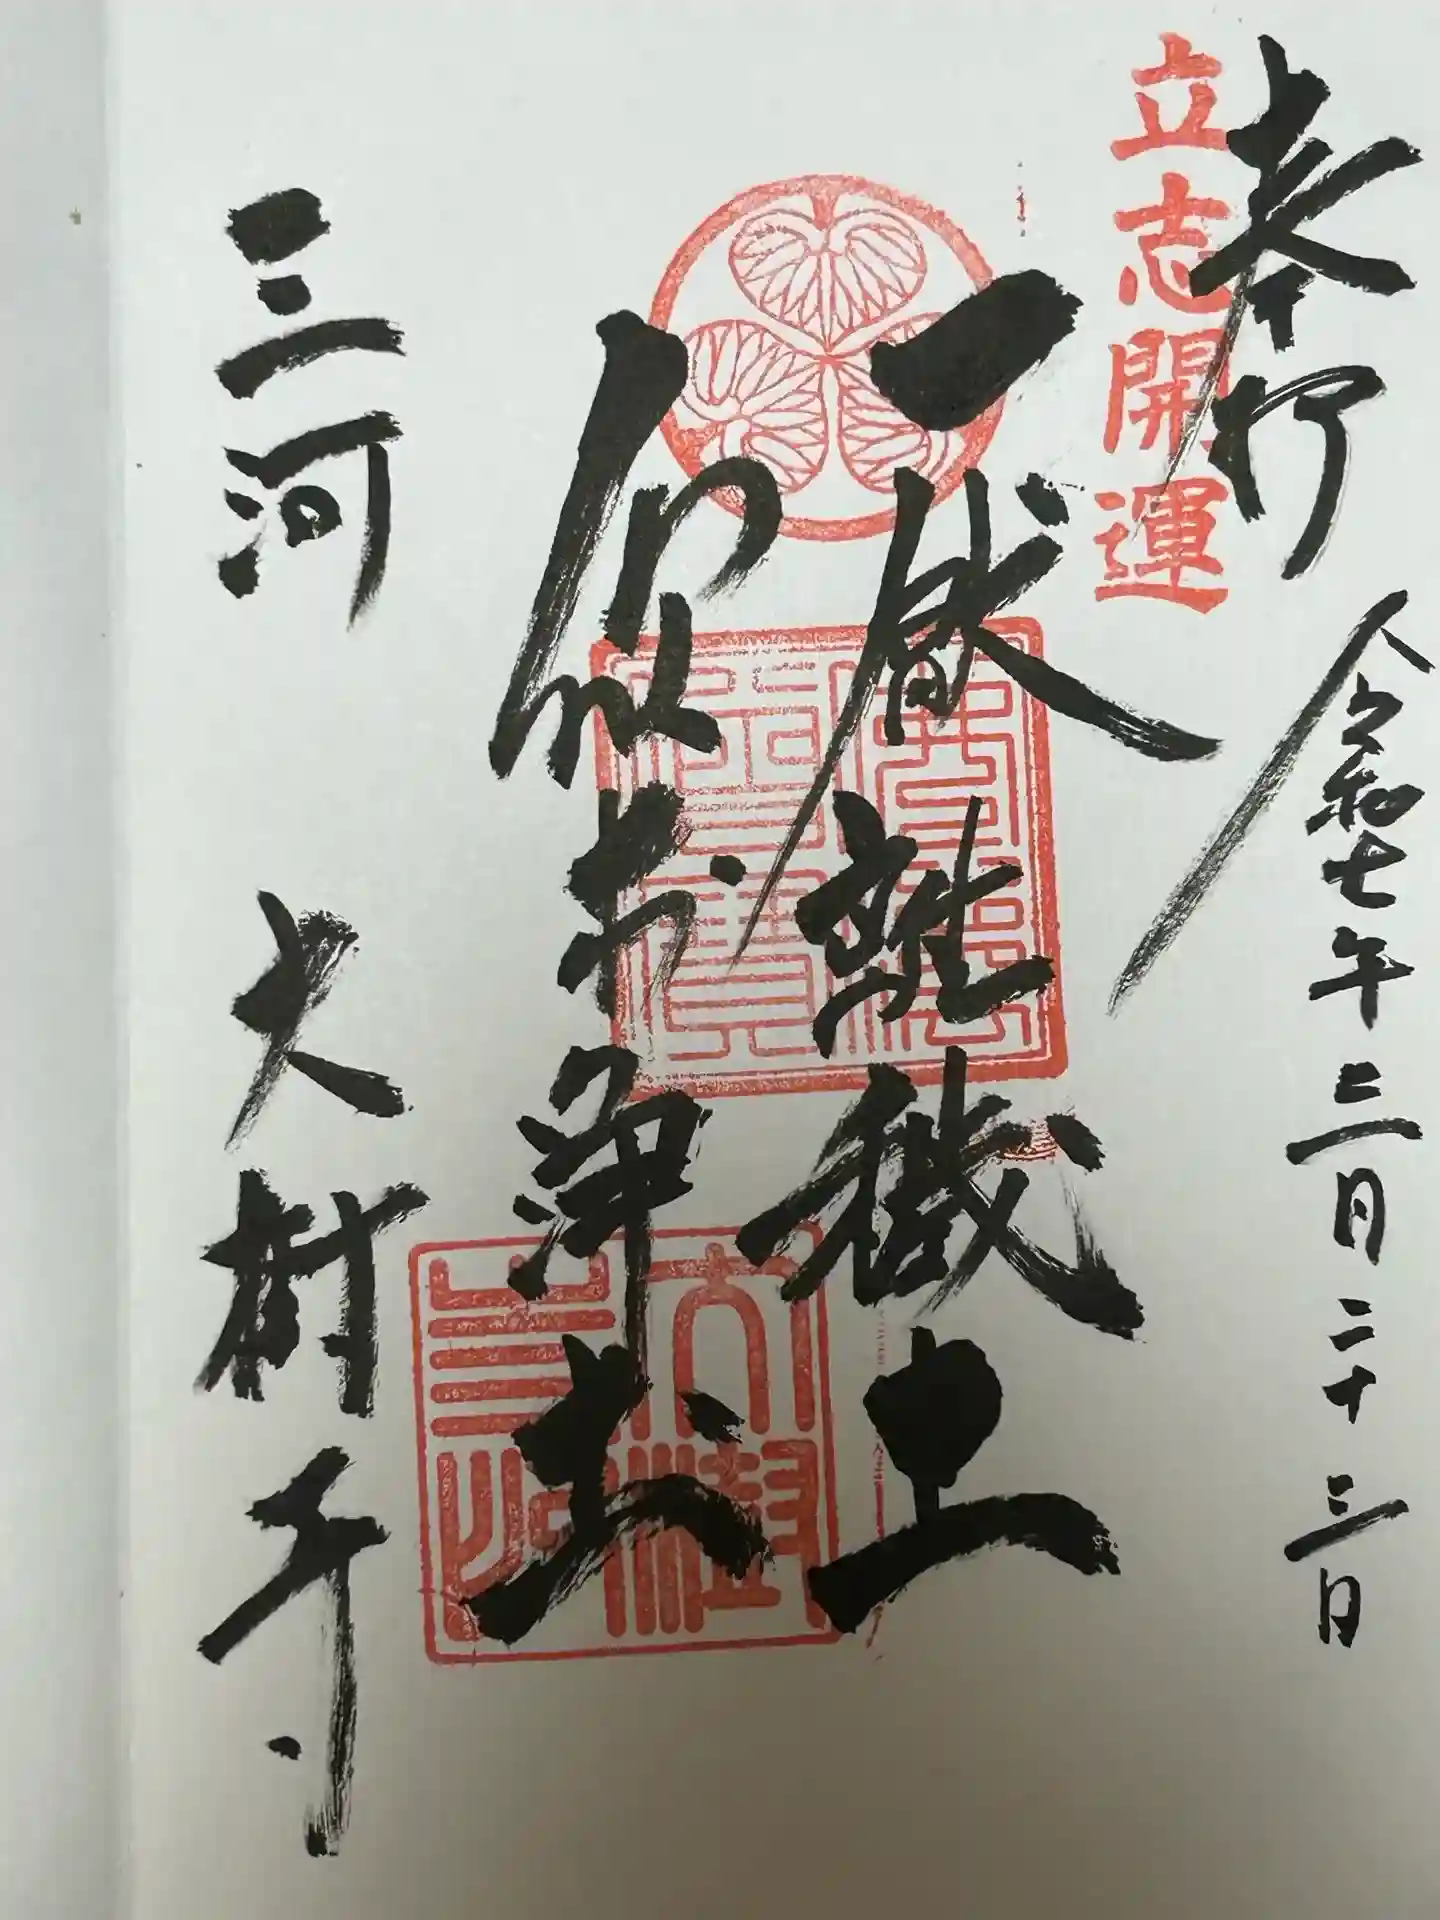 奉拝
令和七年三月二十三日
立志開運
厭離穢土
欣求浄土
三河
大樹寺